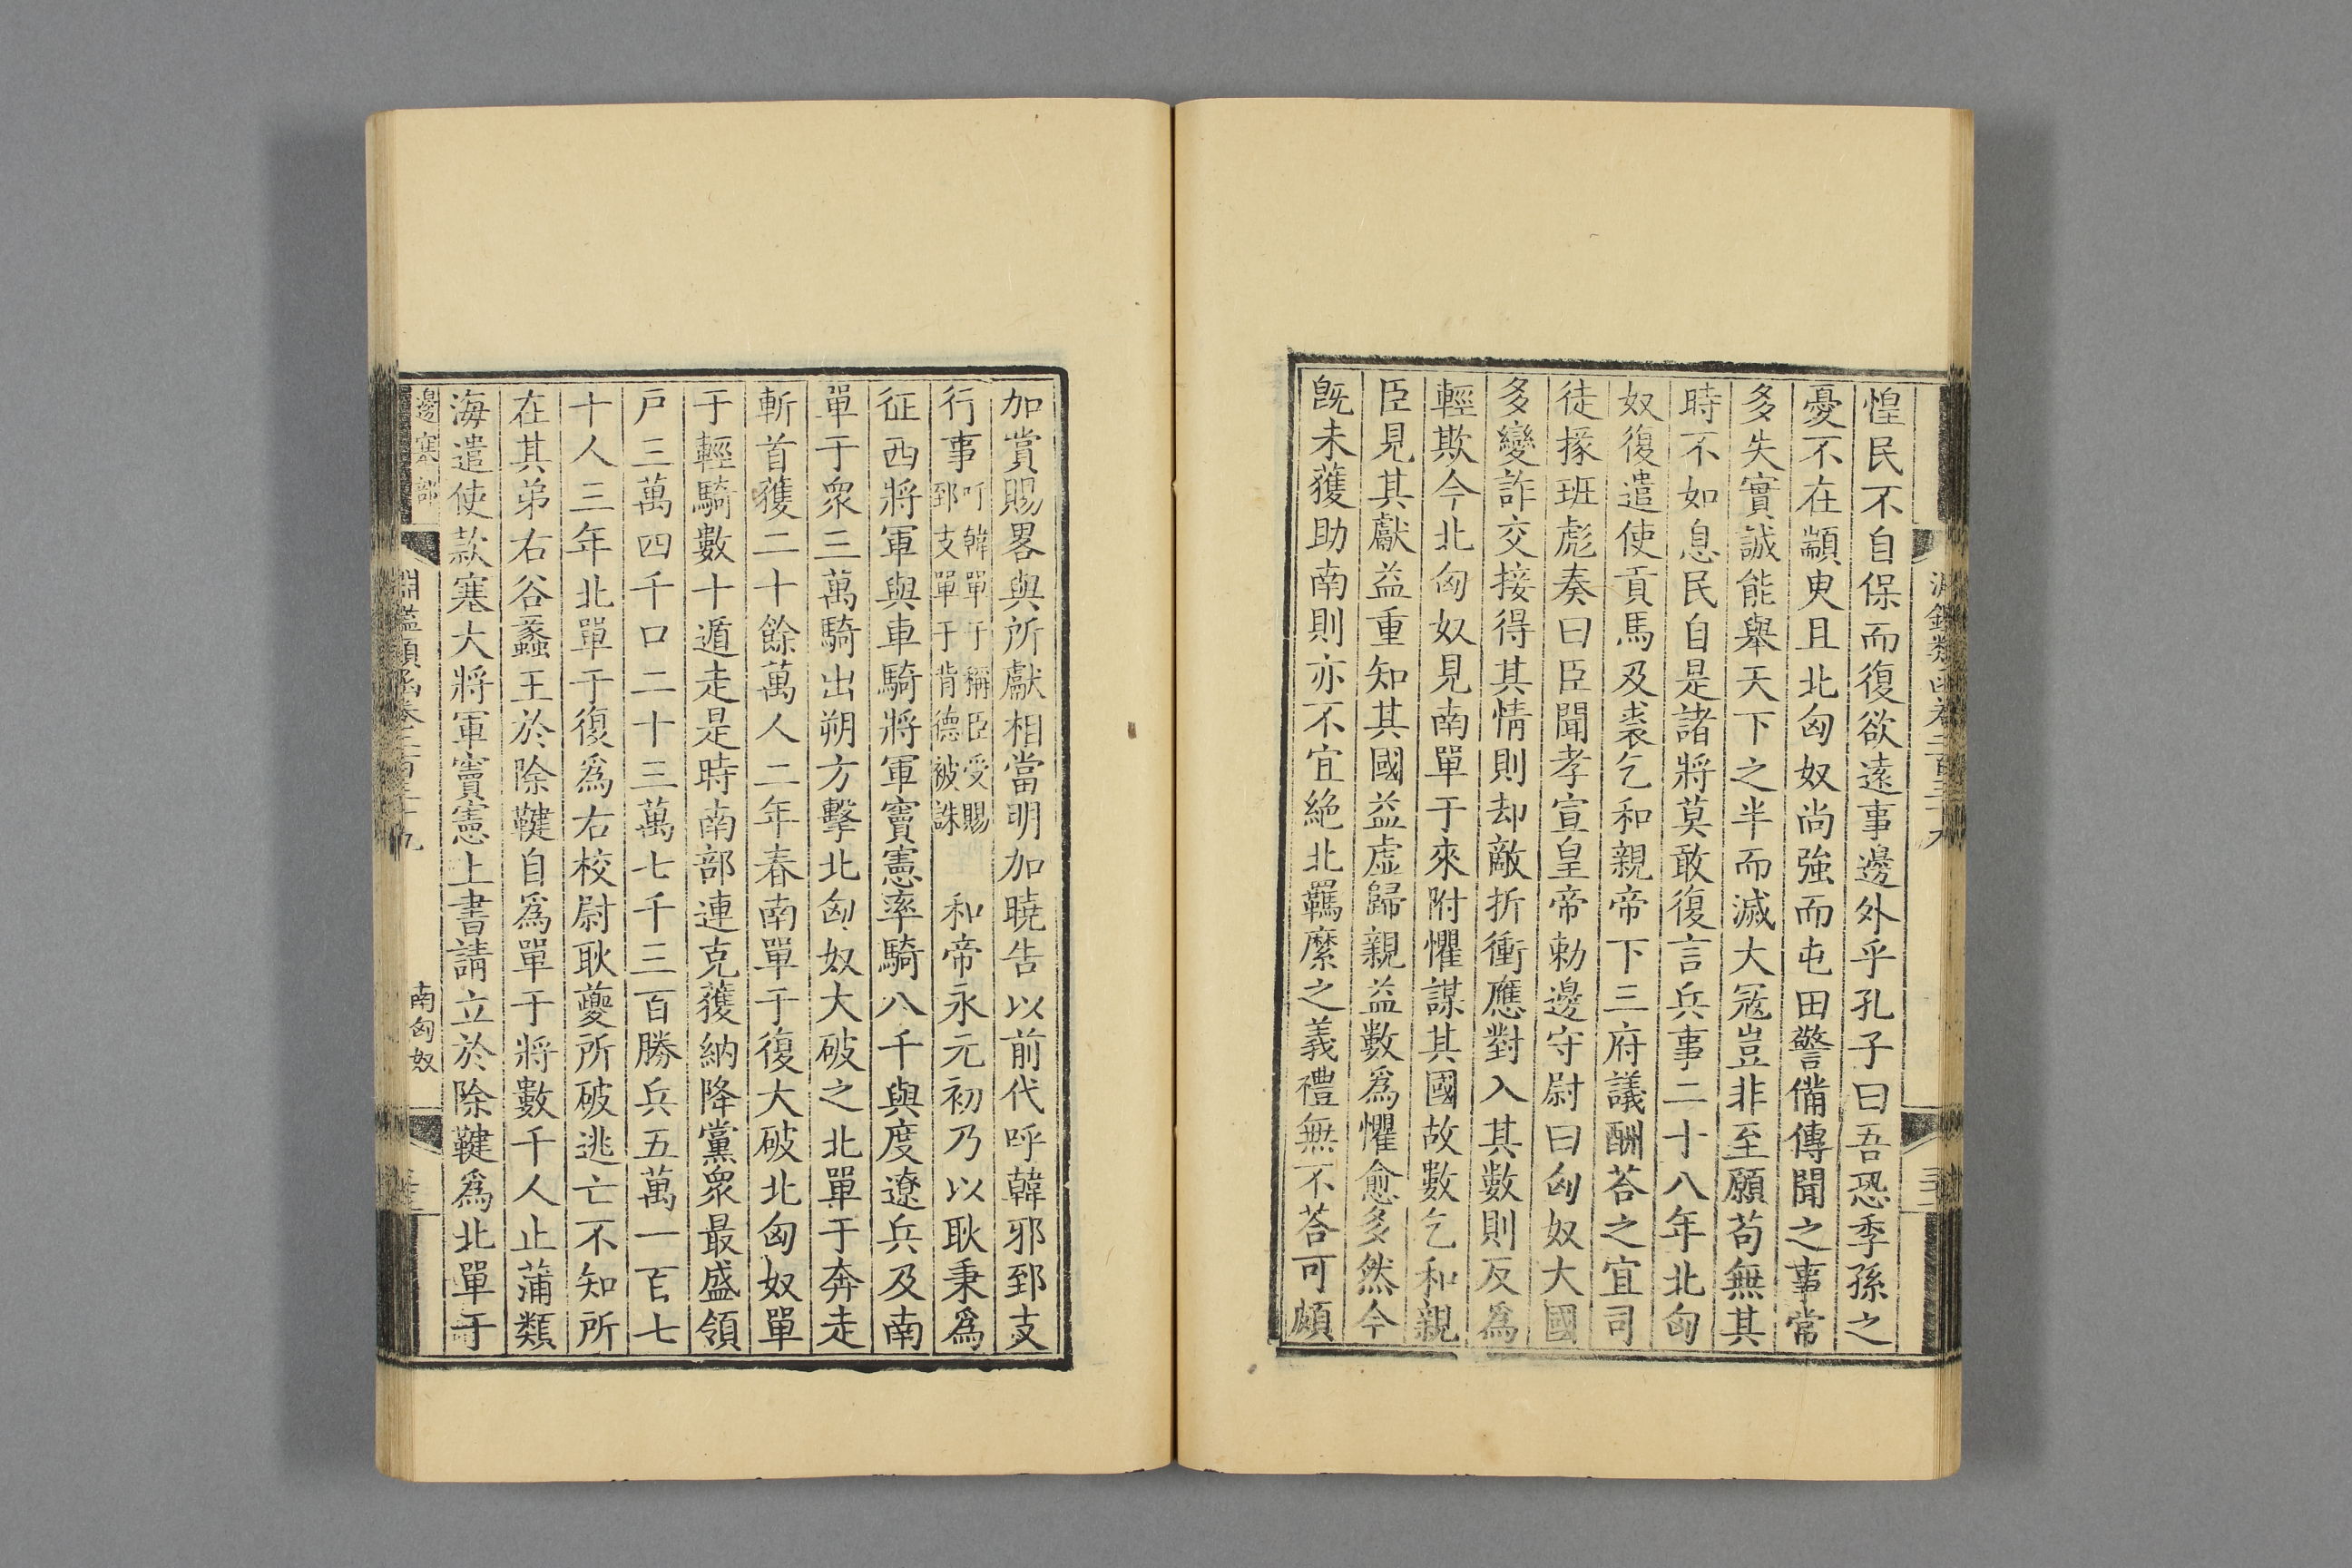 惶民不自保而復欲遠事邊外乎孔子曰吾恐季孫之
憂不在顓臾且北匈奴尚強而屯田警備傳聞之事常
多失實誠能舉天下之半而滅大冦豈非至願苟無其
時不如息民自是諸將莫敢復言兵事二十八年北匈
奴復遣使貢馬及裘乞和親帝下三府議酬荅之宜司
徒掾班彪奏曰臣聞孝宣皇帝勅邊守尉曰匈奴大國
多變詐交接得其情則却敵折衝應對入其數則反為
輕欺今北匈奴見南單于來附懼謀其國故數乞和親
臣見其獻益重知其國益虛歸親益數為懼愈多然今
既未獲助南則亦不宜絶北羈縻之義禮無不荅可頗
加賞賜畧與所獻相當明加曉告以前代呼韓邪郅支
行事呼韓單于稱臣受賜郅支單于背德被誅 和帝永元初乃以耿秉為
征西將軍與車騎將軍竇憲率騎八千與度遼兵及南
單于衆三萬騎出朔方擊北匈奴大破之北單于奔走
斬首獲二十餘萬人二年春南單于復大破北匈奴單
于輕騎數十遁走是時南部連克獲納降黨衆最盛領
戶三萬四千口二十三萬七千三百勝兵五萬一百七
十人三年北單于復為右校尉耿夔所破逃亡不知所
在其弟右谷蠡王於除鞬自為單于將數千人止蒲類
海遣使款塞大將軍竇憲上書請立於除鞬為北單于
邊塞部
南匈奴